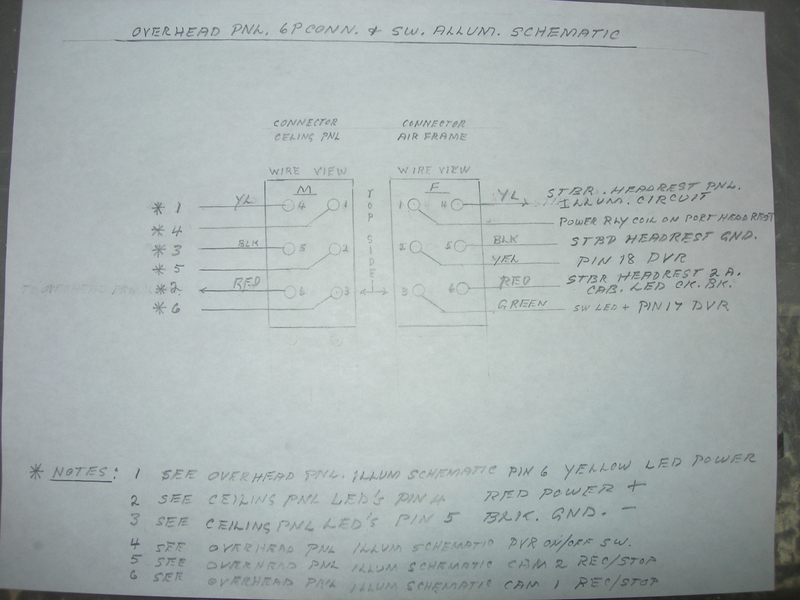 OVERHEAD PNL. 6P CONN. & SW. ALLUM. SCHEMATIC
CONNECTOR
CELING PNL
CONNECTOR
AIR FRAME
WIRE VIEW
WIRE VIEW
M
F
TOP SIDE
* 1 YL 4 1
* 4
* 3 BLK 5 2
* 5
* 2 RED 6 3
* 6
1 4 YL STBR. HEADREST PNL.
ILLUM. CIRCUIT
POWER RLY COIL ON PORT HEADREST
2 5 BLK STBD HEADREST GND.
YEL PIN 18 DVR
3 6 RED STBR HEADREST 2 A.
CAB. LED CK. BK.
GREEN SW LED + PIN 17 DVR
* NOTES: 1 SEE OVERHEAD PNL. ILLUM SCHEMATIC PIN 6 YELLOW LED POWER
2 SEE CEILING PNL LED'S PIN 4 RED POWER +
3 SEE CEILING PNL LED'S PIN 5 BLK. GND. -
4 SEE OVERHEAD PNL ILLUM SCHEMATIC DVR ON/OFF SW.
5 SEE OVERHEAD PNL ILLUM SCHEMATIC CAM 2 REC/STOP
6 SEE OVERHEAD PNL ILLUM SCHEMATIC CAM 1 REC/STOP